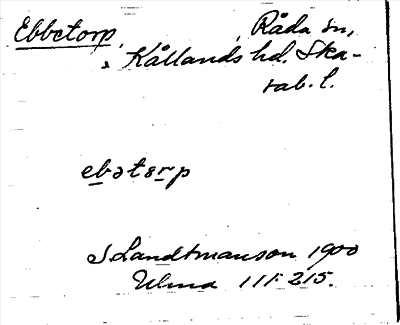 Ebbetorp, Råda sn,
Kållands hd. Ska-
rab. l.
ebətorp
S Landtmanson 1900
Ulma 111:215.